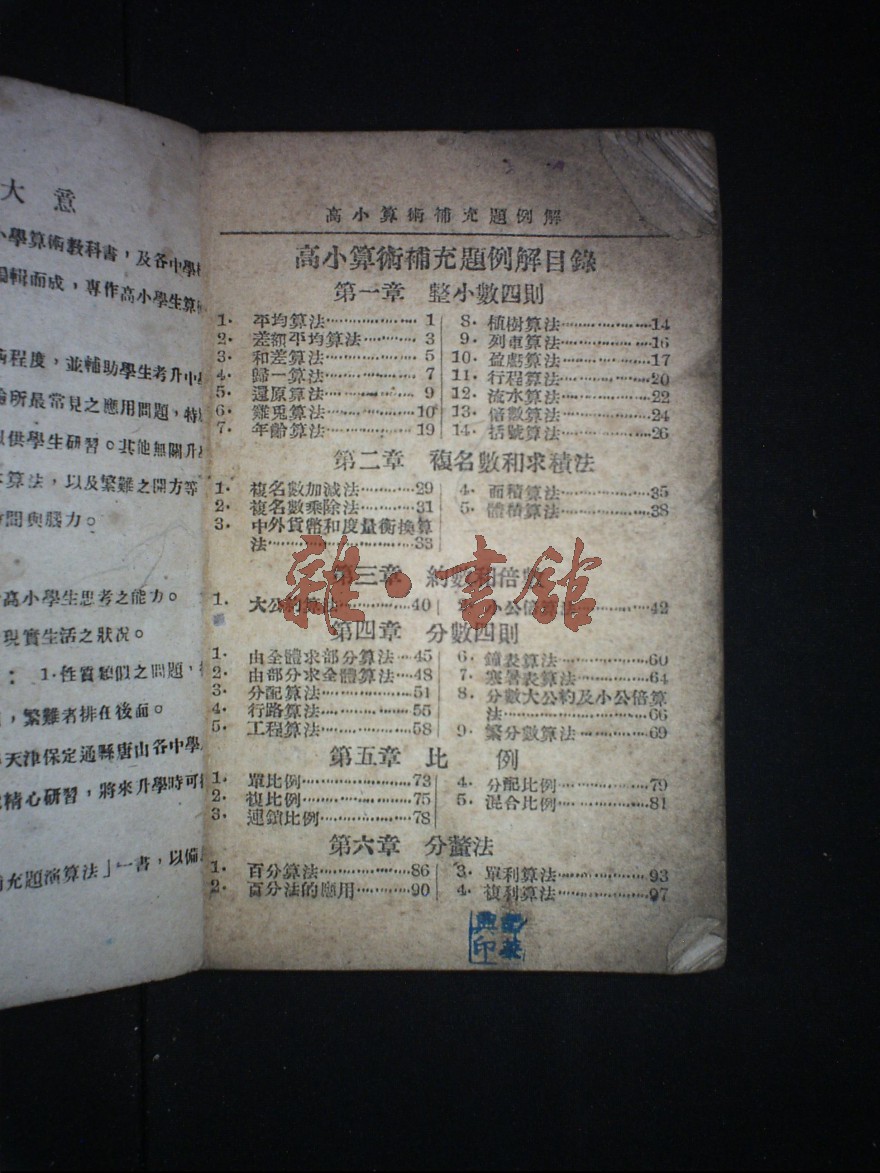 大意
小學算術教科書，及各中學
編輯而成，專作高小學生算
程度，並輔助學生考升中
所最常見之應用問題，特
以供學生研習。其他無關升
算法，以及繁難之開方等
時間與腦力。
高小學生思考之能力。
現實生活之狀况。
：1·性質類似之問題，
，繁難者排在後面。
天津保定通縣唐山各中學
精心研習，將來升學時可
補充題演算法」一書，以備
高小算術補充題例解
高小算術補充題例解目錄
第一章 整小數四則
1· 平均算法 1
2· 差額平均算法 3
3· 和差算法 5
4· 歸一算法 7
5· 還原算法 9
6· 雞兎算法 10
7· 年齡算法 19
8· 植樹算法 14
9· 列車算法 16
10· 盈虧算法 17
11· 行程算法 20
12· 流水算法 22
13· 倍數算法 24
14· 括號算法 26
第二章 複名數和求積法
1· 複名數加減法 29
2· 複名數乘除法 31
3· 中外貨幣和度量衡換算
法 33
4· 面積算法 35
5· 體積算法 38
第三章 約數和倍數
1· 大公約算法 40
2· 小公倍算法 42
第四章 分數四則
1· 由全體求部分算法 45
2· 由部分求全體算法 48
3· 分配算法 51
4· 行路算法 55
5· 工程算法 58
6· 鐘表算法 60
7· 寒暑表算法 64
8· 分數大公約及小公倍算
法 66
9· 繁分數算法 69
第五章 比 例
1· 單比例 73
2· 複比例 75
3· 連鎖比例 78
4· 分配比例 79
5· 混合比例 81
第六章 分釐法
1· 百分算法 86
2· 百分法的應用 90
3· 單利算法 93
4· 複利算法 97
雜·書館